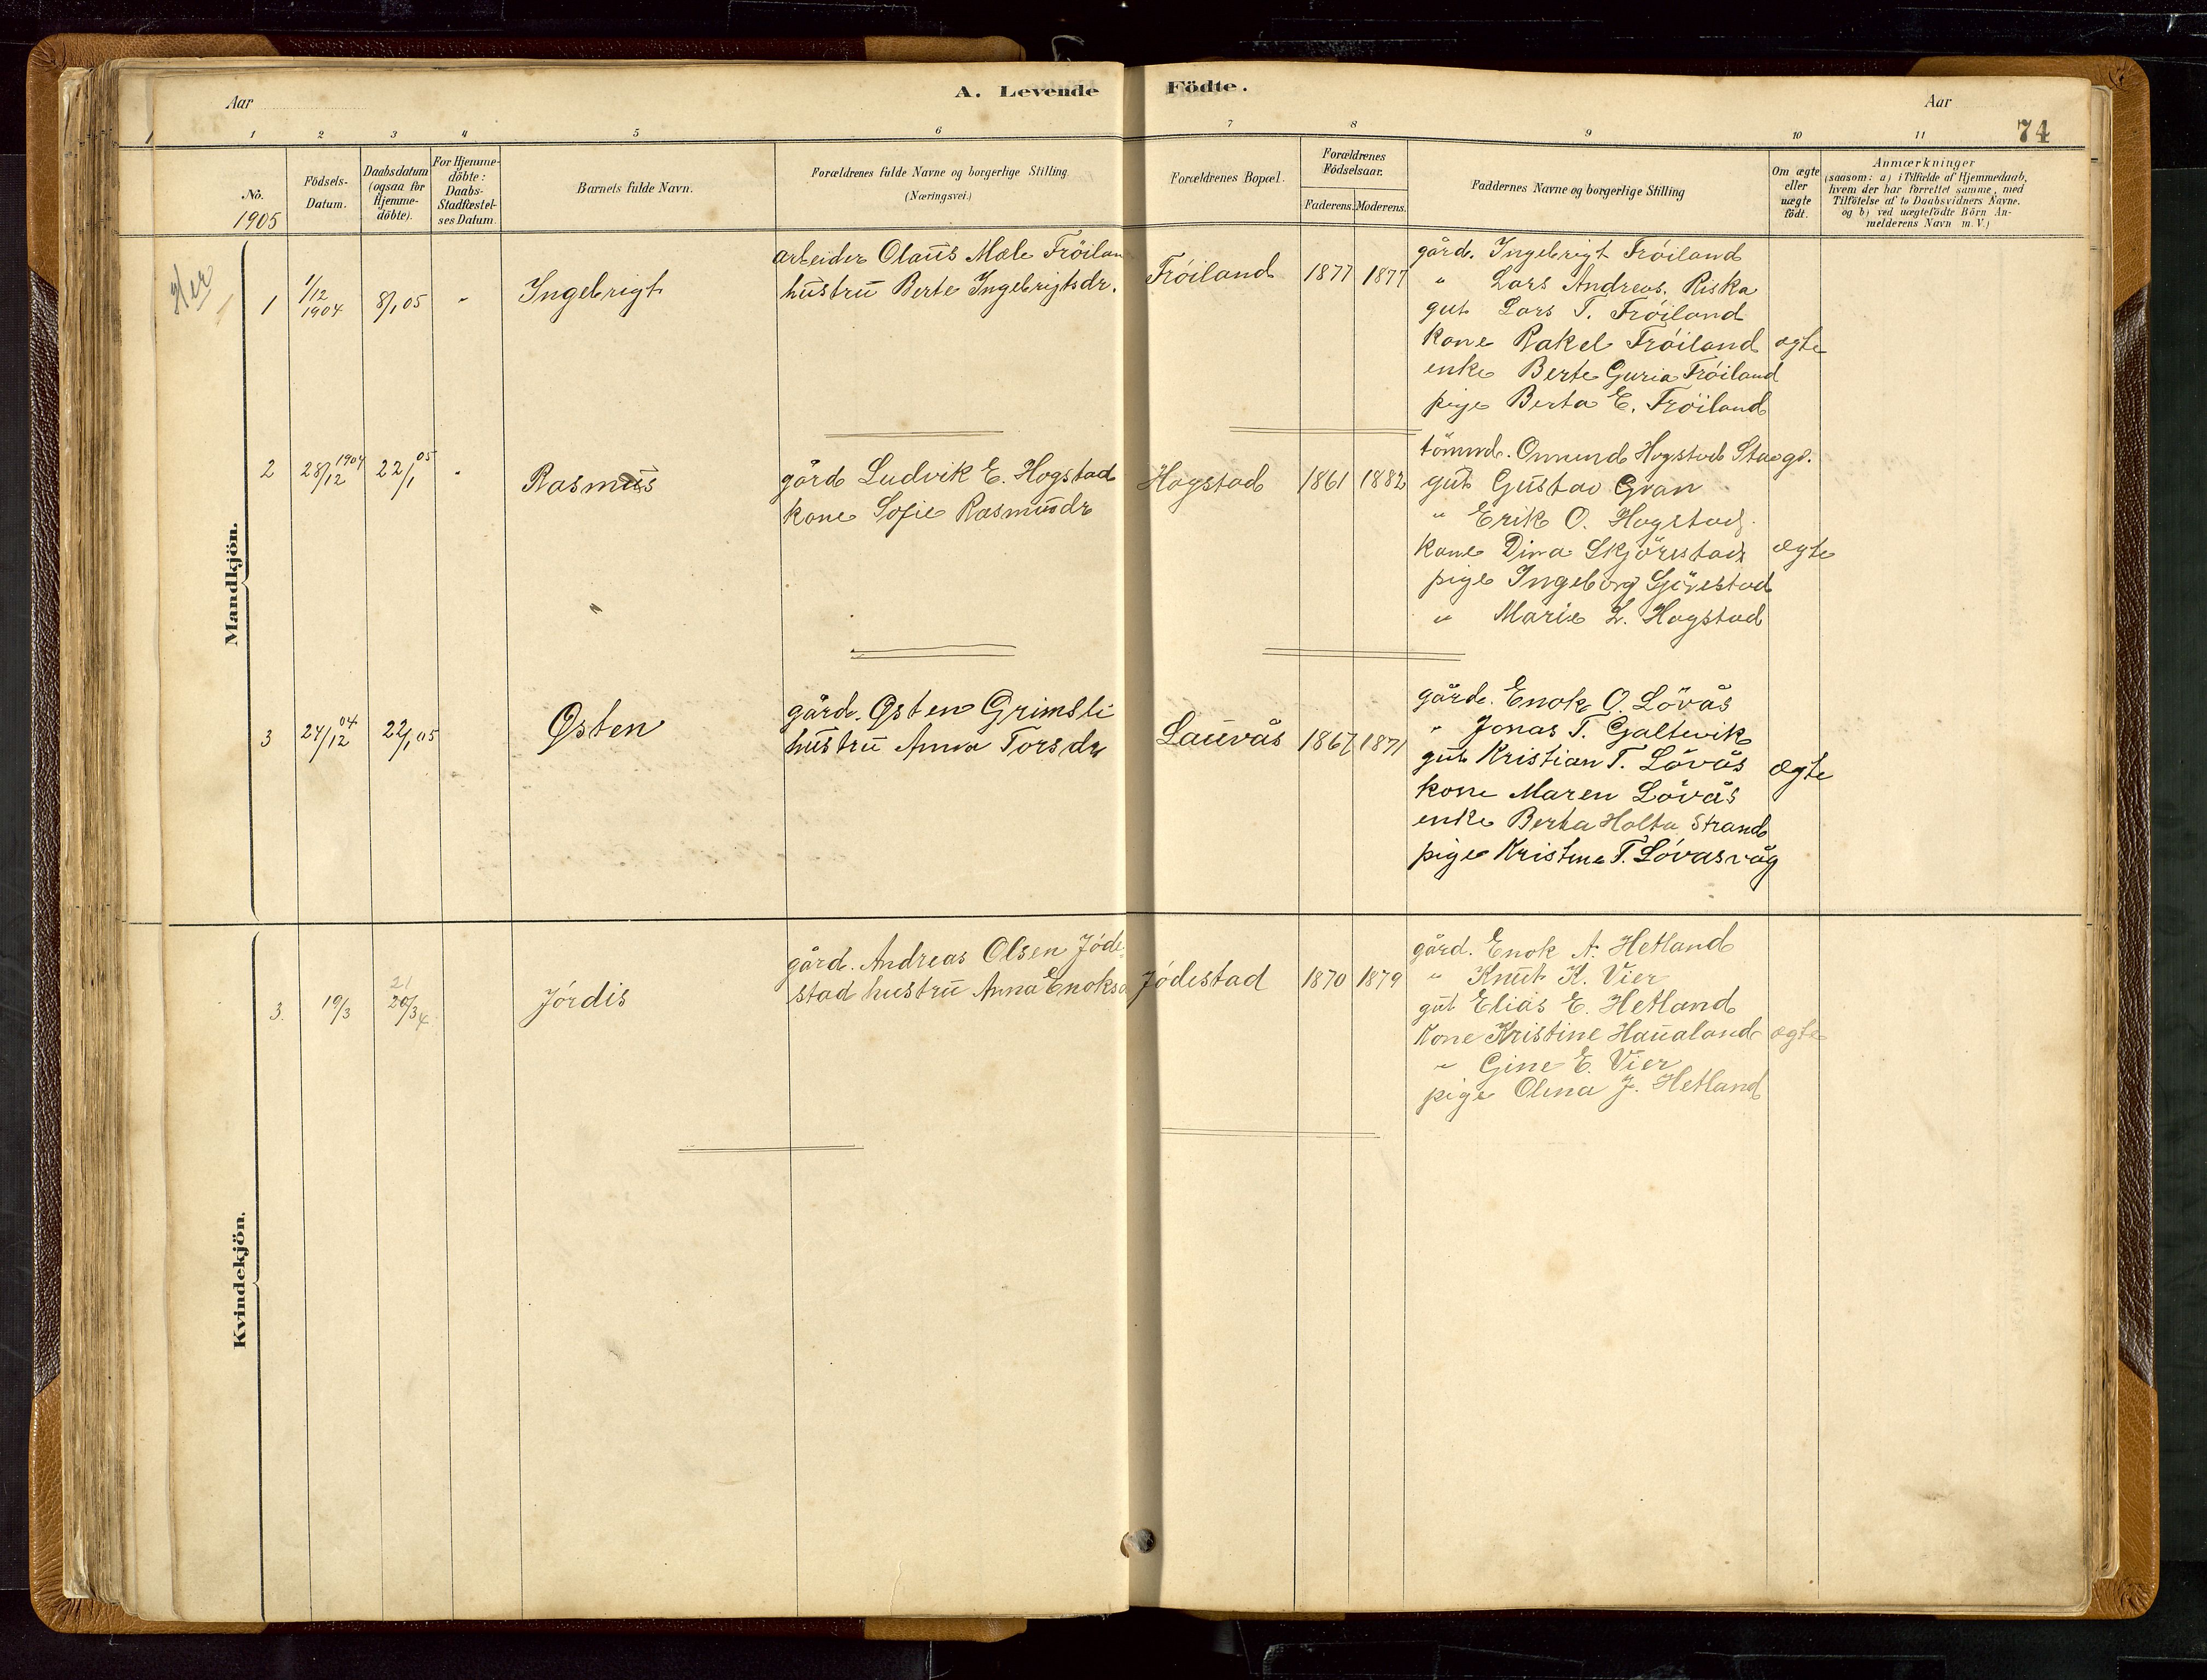 A. Levende Födte.
Aar
Aar
74
1 2 3 4 5 6 7 8 9 10 11
No.
1905
Födsels-
Datum.
Daabsdatum
(ogsaa for
Hjemme-
döbte).
For Hjemme-
döbte:
Daabs-
Stadfæstel-
ses Datum.
Barnets fulde Navn.
Forældrenes fulde Navne og borgerlige Stilling.
(Næringsvei.)
Forældrenes Bopæl.
Forældrenes
Födselsaar.
Faderens. Moderens.
Faddernes Navne og borgerlige Stilling
Om ægte
eller
uægte
födt.
Anmærkninger
(saasom: a) i Tilfælde af Hjemmedaab,
hvem der har forrettet samme, med
Tilfötelse af to Daabsvidners Navne.
og b) ved uægtefödte Börn An-
melderens Navn m. V.)
Mandkjön.
Her
1 1/12 1904 8/1 05 " Ingebrigt
arbeider Olaus Male Fröilan
hustru Berte Ingebrigtsdr.
Fröiland 1877 1877
gård. Ingebrigt Fröiland
" Lars Andreas. Riska
gut Lars T. Fröiland
kone Rakel Fröiland ægte
enke Berte Guria Fröiland
pige Berta E. Fröiland
2 28/12 1904 22/1 05 " Rasmus
gård Ludvik E. Hogstad
kone Sofie Rasmusdr
Hogstad 1861 1882
tömmd. Onmund Hogstad
gut Gustav Gran
" Erik O. Hogstad.
kone Dina Skjörestad ægte
pige Ingeborg Gjörestad
" Marie L. Hogstad
3 24/12 04 22/1 05 Østen
gård. Østen Grimsli
hustru Anna Torsdr
Lauvås 1867 1871
gård. Enok O. Lövås
" Jonas T. Galtevik
gut Kristian T. Lövås ægte
kone Maren Lövås
enke Berta Holta Strand
pige Kristine T. Lövasvåg
Kvindekjön.
3. 19/3 21 20/3 4 Jördis
gård. Andreas Olsen Jöde-
stad hustru Anna Enoksd
Jödestad 1870 1879
gård. Enok A. Hetland
" Knut K. Vier
gut Elias E. Hetland
Kone Kristine Haualand ægte
" Gine E. Vier
pige Olina J. Hetland